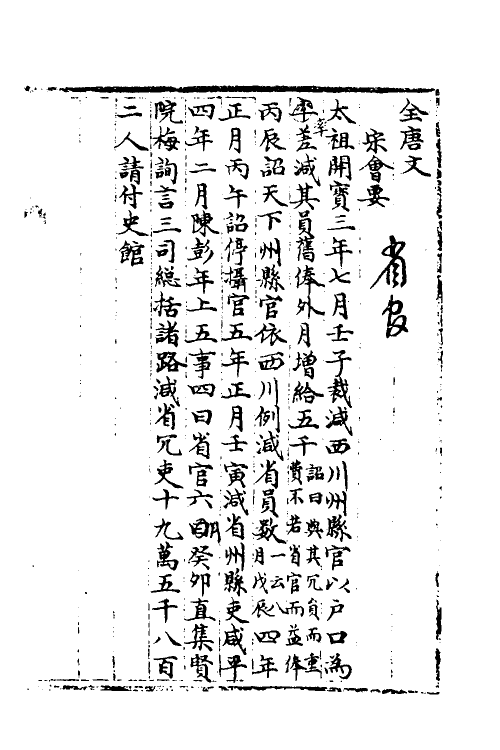 全唐文
宋會要
省官
太祖開寶三年七月壬子裁減西川州縣官以户口為
率差減其員舊俸外月增給五千詔曰與其冗員而重費不若省官而益俸
丙辰詔天下州縣官依西川例減省員數一云八月戊辰四年
正月丙午詔停攝官五年正月壬寅減省州縣吏咸平
四年二月陳彭年上五事四曰省官六月癸卯直集賢
院梅詢言三司總括諸路減省冗吏十九萬五千八百
二人請付史館